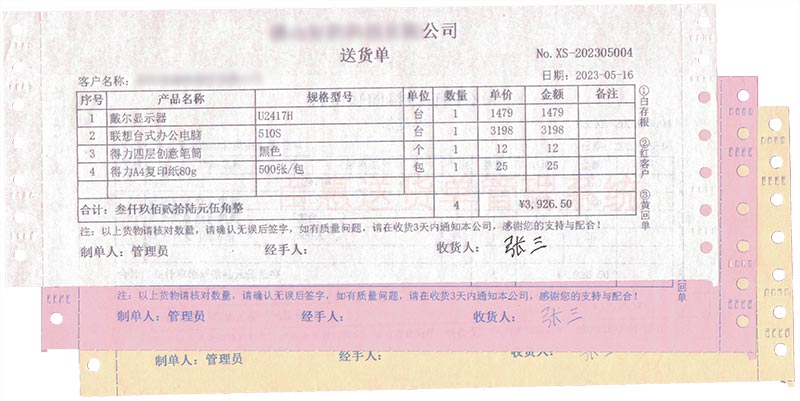 公司
送货单
No. XS-202305004
客户名称：
日期：2023-05-16
序号 产品名称 规格型号 单位 数量 单价 金额 备注
1 戴尔显示器 U2417H 台 1 1479 1479
2 联想台式办公电脑 510S 台 1 3198 3198
3 得力四层创意笔筒 黑色 个 1 12 12
4 得力A4复印纸80g 500张/包 包 1 25 25
百惠送货单管理系统
合计：叁仟玖佰贰拾陆元伍角整 4 ¥3,926.50
①白存根 ②红客户 ③黄回单
注：以上货物请核对数量，请确认无误后签字，如有质量问题，请在收货3天内通知本公司，感谢您的支持与配合！
制单人：管理员 经手人： 收货人：张三
回单
注：以上货物请核对数量，请确认无误后签字，如有质量问题，请在收货3天内通知本公司，感谢您的支持与配合！
制单人：管理员 经手人： 收货人：张三
制单人：管理员 经手人： 收货人：张三